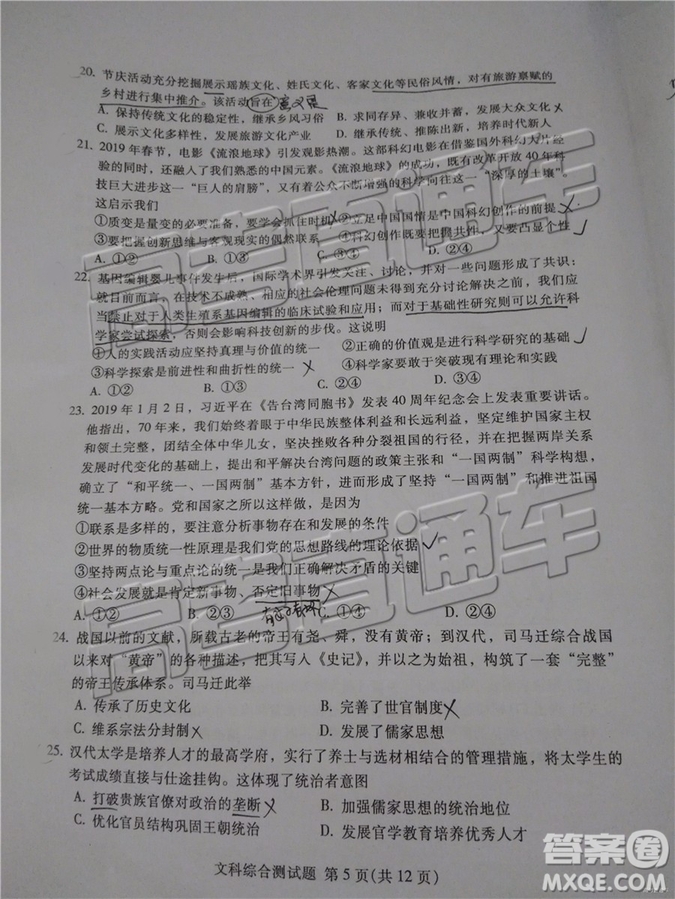 20. 节庆活动充分挖掘展示瑶族文化、姓氏文化、客家文化等民俗风情，对有旅游禀赋的
乡村进行集中推介。该活动旨在
A. 保持传统文化的稳定性，继承乡风习俗 B. 求同存异、兼收并蓄，发展大众文化
C. 展示文化多样性，发展旅游文化产业 D. 继承传统、推陈出新，培养时代新人
21. 2019年春节，电影《流浪地球》引发观影热潮。这部科幻电影在借鉴国外科幻大片经
验的同时，还融入了我们熟悉的中国元素。《流浪地球》的成功，既有改革开放40年科
技巨大进步这一“巨人的肩膀”，又有着公众不断增强的科学向往这一“深厚的土壤”
这启示我们
①质变是量变的必要准备，要学会抓住时机 ②立足中国国情是中国科幻创作的前提
③要把握创新思维与客观现实的偶然联系 ④科幻创作既要把握共性，又要凸显个性
A. ①② B. ①③ C. ③④ D. ②④
22. 基因编辑婴儿事件发生后，国际学术界引发关注、讨论，并对一些问题形成了共识：
就目前而言，在技术不成熟、相应的社会伦理问题尚未得到充分讨论解决之前，我们应
当禁止对于人类生殖系基因编辑的临床试验和应用；而对于基础性研究则可以允许科
学家尝试探索，否则会影响科技创新的步伐。这说明
①人的实践活动应坚持真理与价值的统一 ②正确的价值观是进行科学研究的基础
③科学探索是前进性和曲折性的统一 ④科学家要敢于突破现有理论和实践
A. ①② B. ①③ C. ②④ D. ③④
23. 2019年1月2日，习近平在《告台湾同胞书》发表40周年纪念会上发表重要讲话。
他指出，70年来，我们始终着眼于中华民族整体利益和长远利益，坚定维护国家主权
和领土完整，团结全体中华儿女，坚决挫败各种分裂祖国的行径，并在把握两岸关系
发展时代变化的基础上，提出和平解决台湾问题的政策主张和“一国两制”科学构想，
确立了“和平统一、一国两制”基本方针，进而形成了坚持“一国两制”和推进祖国统
一基本方略。党和国家之所以这样做，是因为
①联系是多样的，要注意分析事物存在和发展的条件
②世界的物质统一性原理是我们党的思想路线的理论依据
③坚持两点论与重点论的统一是我们正确解决矛盾的关键
④社会发展就是肯定新事物、否定旧事物
A. ①② B. ②③ C. ①④ D. ②④
24. 战国以前的文献，所载古老的帝王有尧、舜，没有黄帝；到汉代，司马迁综合战国
以来对“黄帝”的各种描述，把其写入《史记》，并以之为始祖，构筑了一套“完整”
的帝王传承体系。司马迁此举
A. 传承了历史文化 B. 完善了世官制度
C. 维系宗法分封制 D. 发展了儒家思想
25. 汉代太学是培养人才的最高学府，实行了养士与选材相结合的管理措施，将太学生的
考试成绩直接与仕途挂钩。这体现了统治者意图
A. 打破贵族官僚对政治的垄断 B. 加强儒家思想的统治地位
C. 优化官员结构巩固王朝统治 D. 发展官学教育培养优秀人才
文科综合测试题 第5页(共12页)
高考直通车
高考直通车
高考直通车
答案圈
MXQE.COM